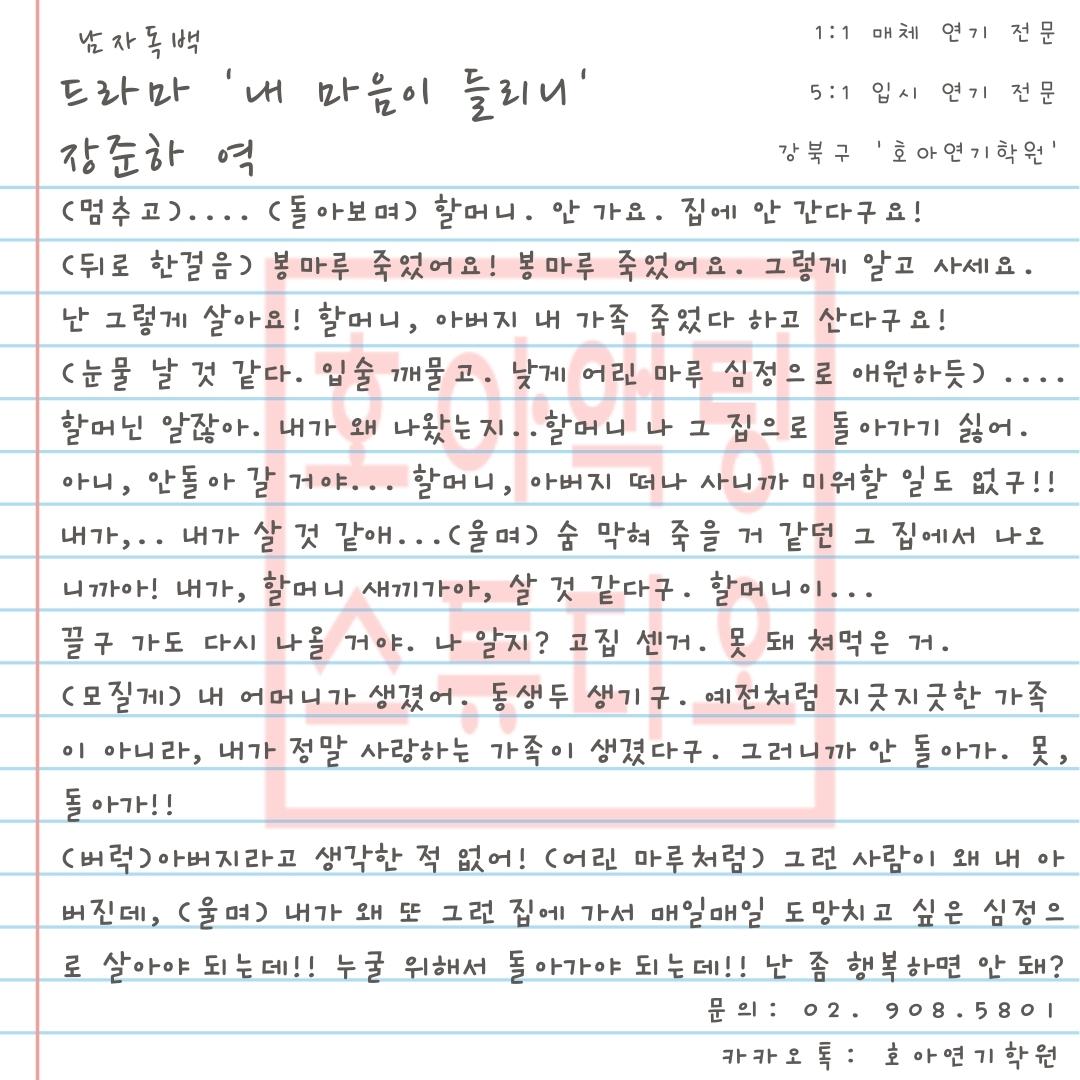 남자독백
드라마 '내 마음이 들리니'
장준하 역
1:1 매체 연기 전문
5:1 입시 연기 전문
강북구 '호아연기학원'
(멈추고).... (돌아보며) 할머니. 안 가요. 집에 안 간다구요!
(뒤로 한걸음) 봉마루 죽었어요! 봉마루 죽었어요. 그렇게 알고 사세요.
난 그렇게 살아요! 할머니, 아버지 내 가족 죽었다 하고 산다구요!
(눈물 날 것 같다. 입술 깨물고. 낮게 어린 마루 심정으로 애원하듯) ....
할머닌 알잖아. 내가 왜 나왔는지..할머니 나 그 집으로 돌아가기 싫어.
아니, 안돌아 갈 거야... 할머니, 아버지 떠나 사니까 미워할 일도 없구!!
내가,.. 내가 살 것 같애...(울며) 숨 막혀 죽을 거 같던 그 집에서 나오
니까아! 내가, 할머니 새끼가아, 살 것 같다구. 할머니이...
끌구 가도 다시 나올 거야. 나 알지? 고집 센거. 못 돼 쳐먹은 거.
(모질게) 내 어머니가 생겼어. 동생두 생기구. 예전처럼 지긋지긋한 가족
이 아니라, 내가 정말 사랑하는 가족이 생겼다구. 그러니까 안 돌아가. 못,
돌아가!!
(버럭)아버지라고 생각한 적 없어! (어린 마루처럼) 그런 사람이 왜 내 아
버진데, (울며) 내가 왜 또 그런 집에 가서 매일매일 도망치고 싶은 심정으
로 살아야 되는데!! 누굴 위해서 돌아가야 되는데!! 난 좀 행복하면 안 돼?
문의: 02. 908.5801
카카오톡: 호아연기학원
호아액팅
스튜디오